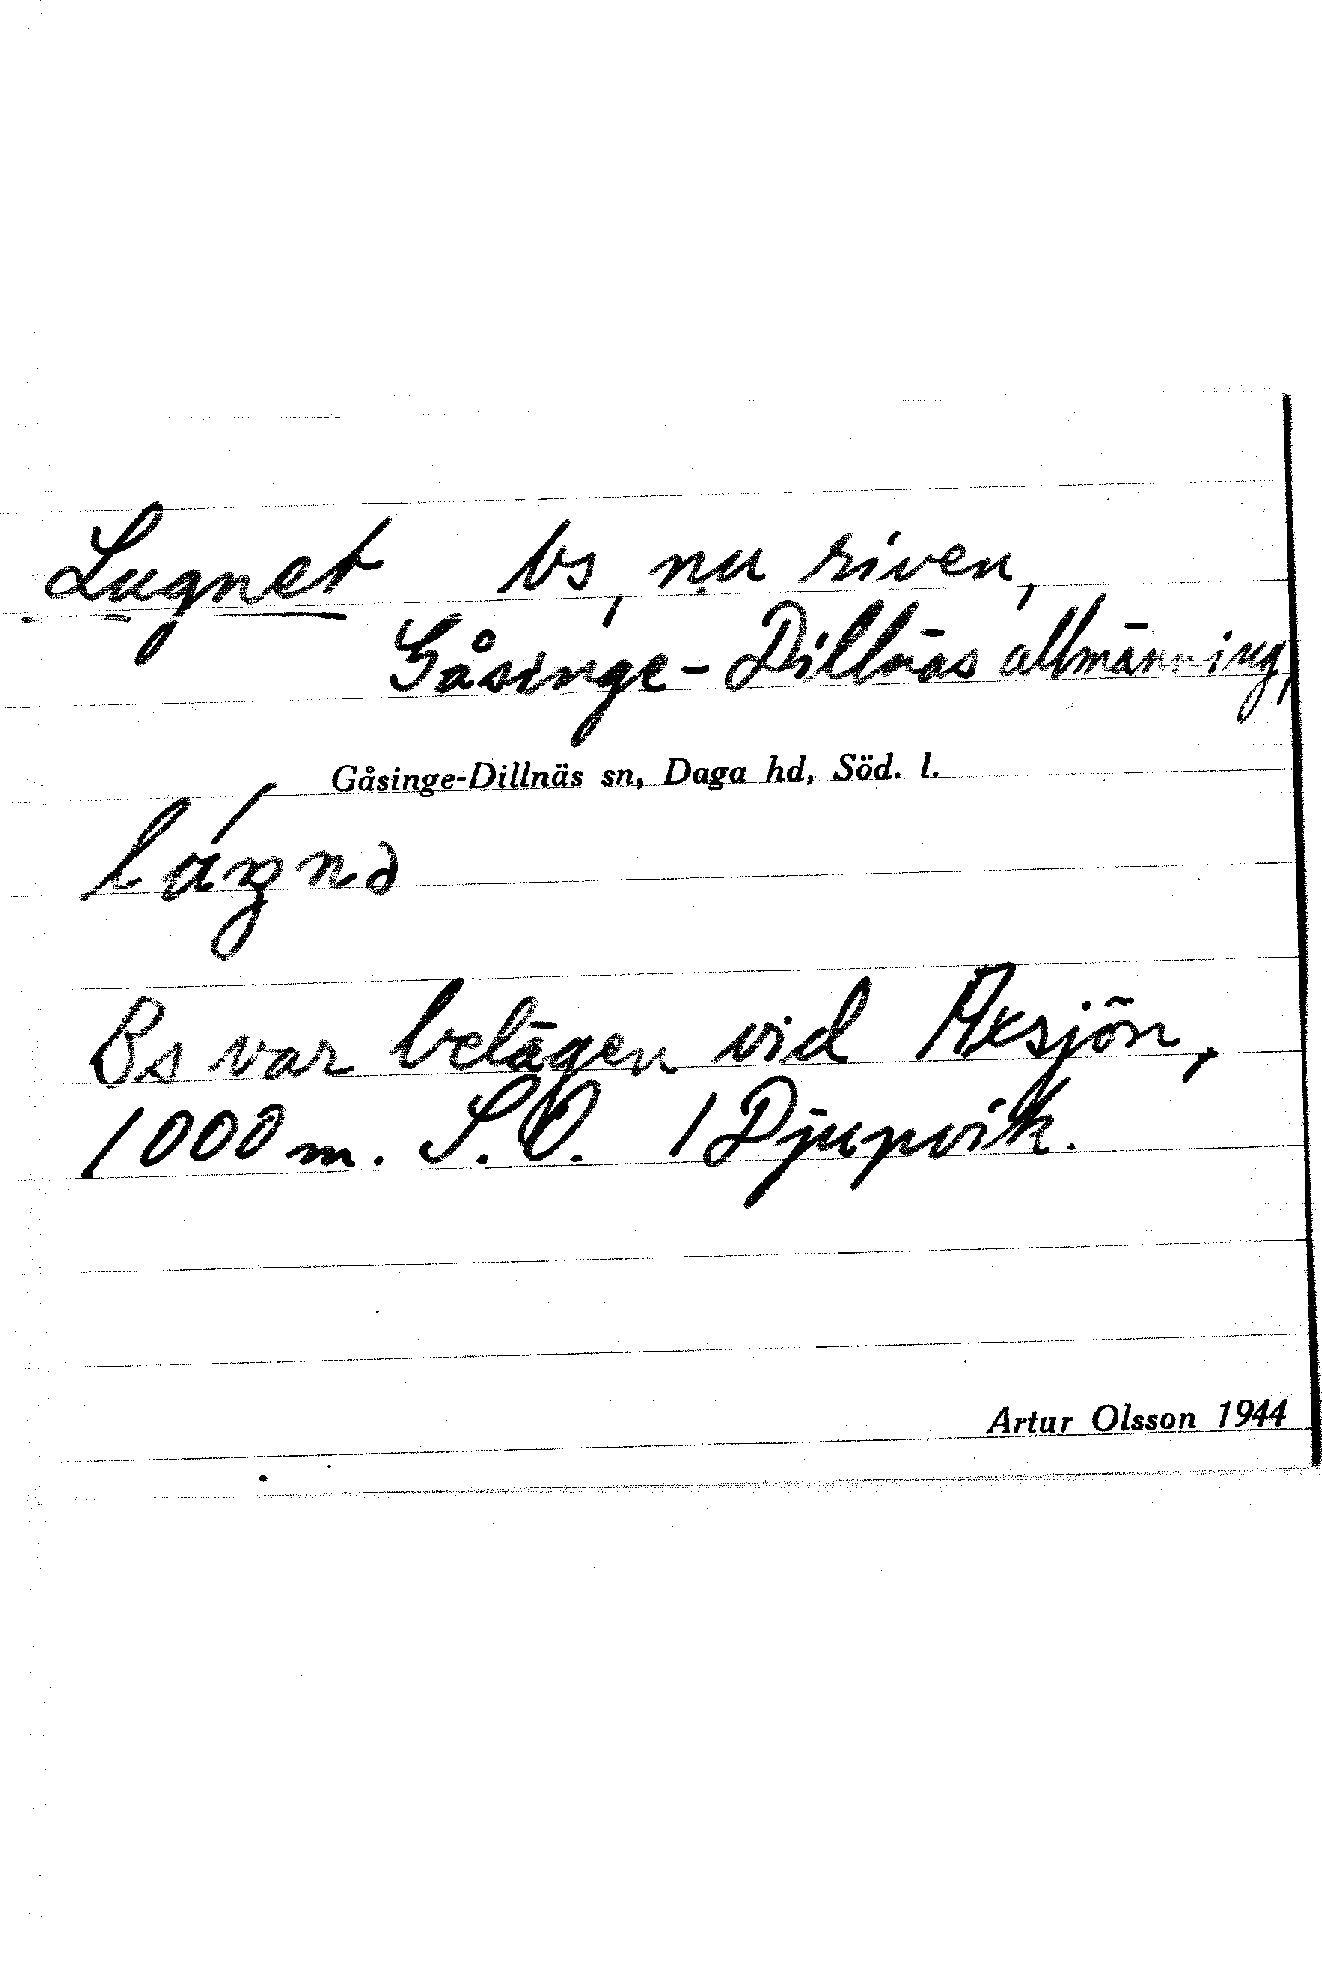 Lugnet bs, nu riven,
Gåsinge-Dillnäs allmänning,
Gåsinge-Dillnäs sn, Daga hd, Söd. l.
Bs var belägen vid Axsjön,
1000 m. S.O. / Djupvik.
Artur Olsson 1944